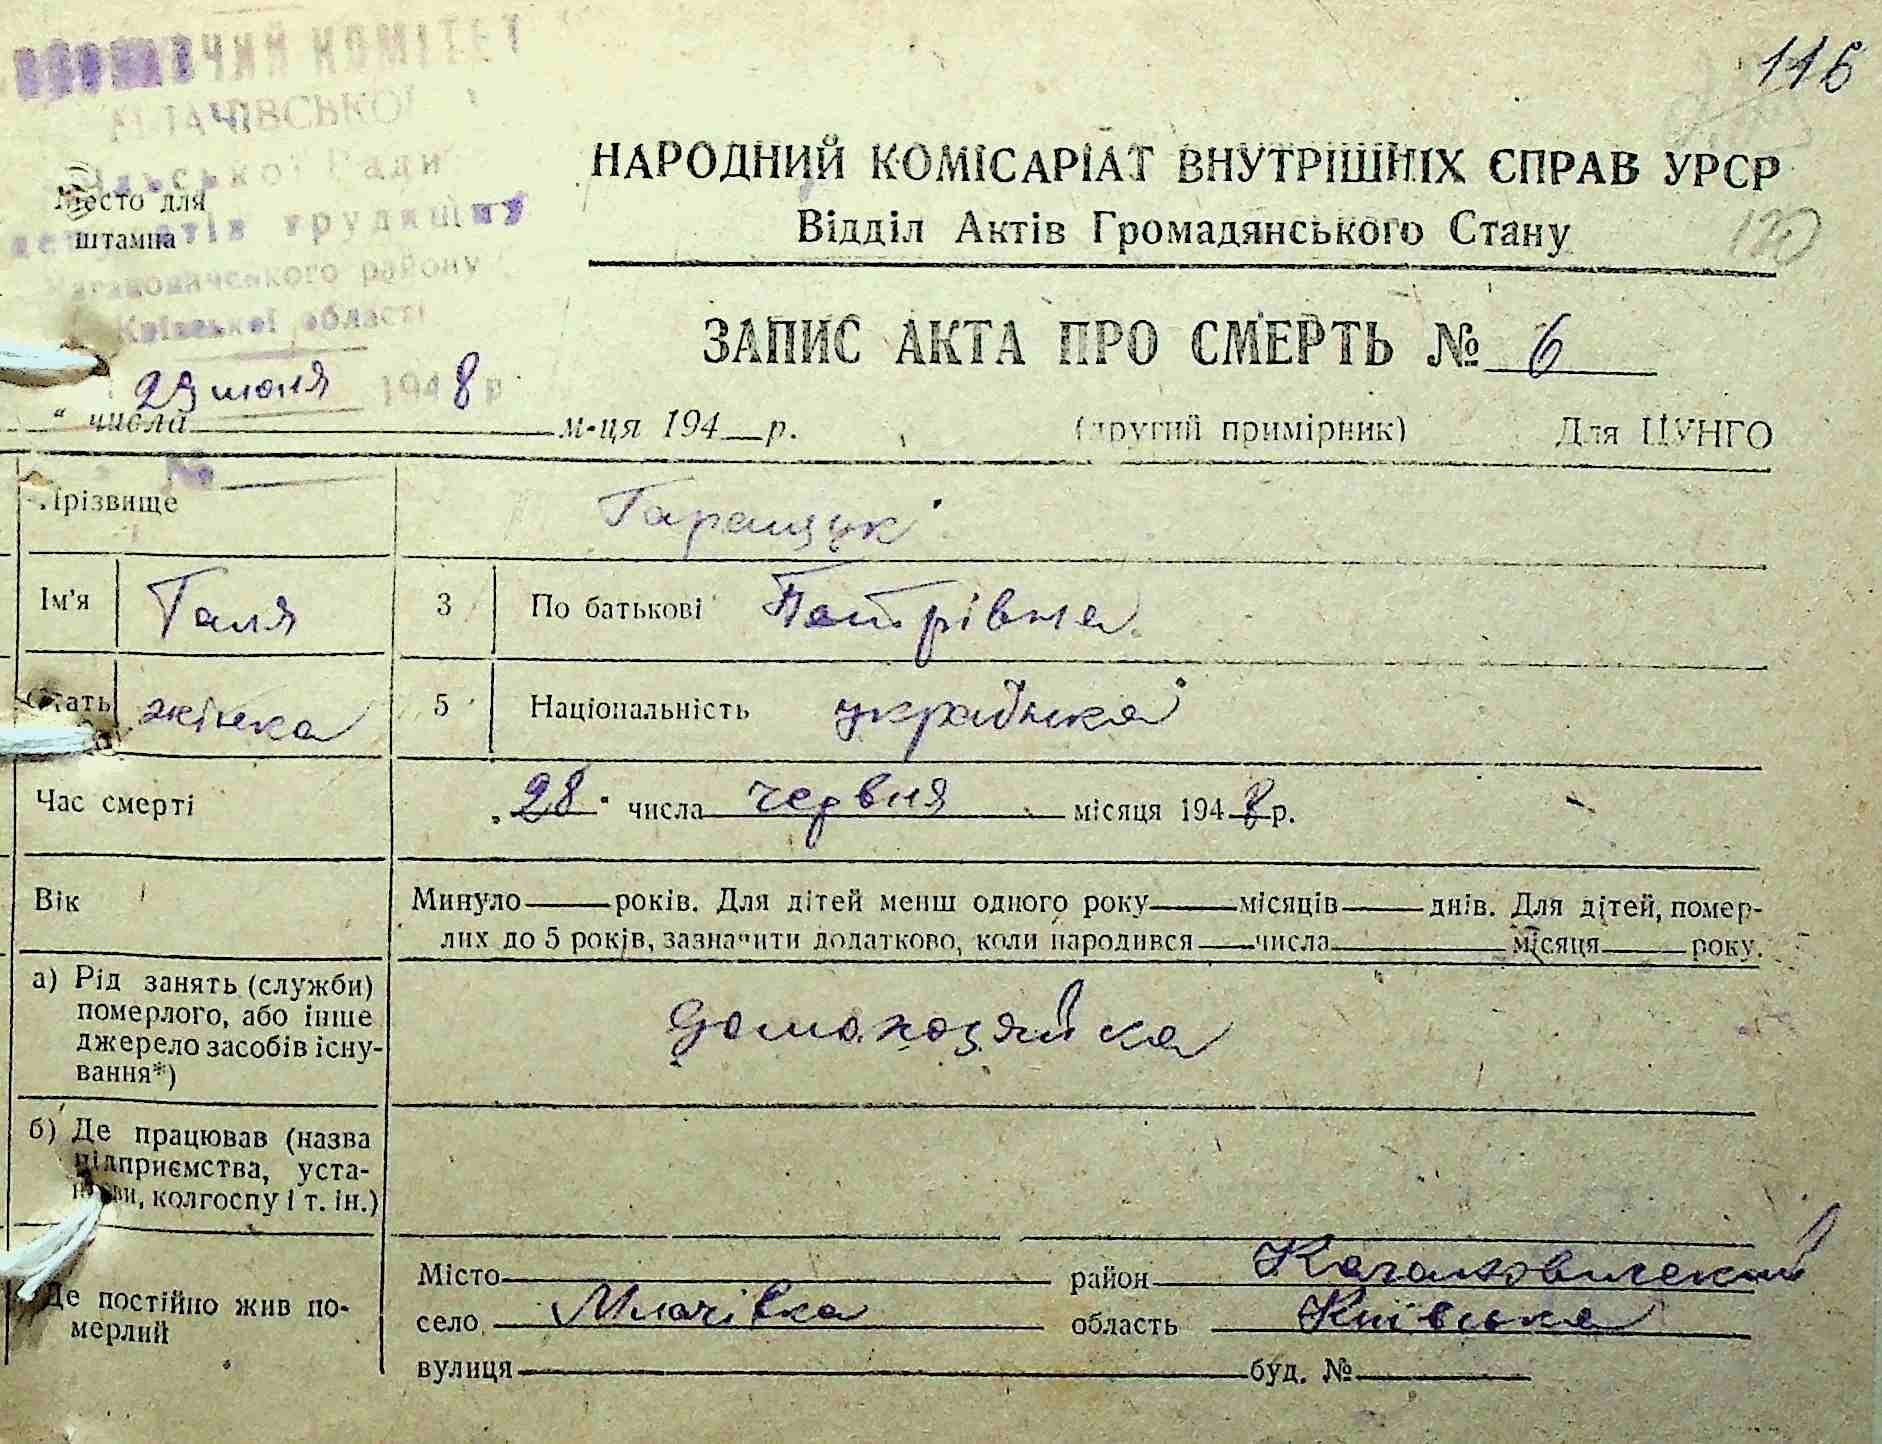 116
ЧИЙ КОМІТЕТ
МЛАЧІВСЬКОЇ
сільської Ради
депутатів трудящих
Кагановичського району
Київської області
Место для
штампа
29 июня 1948 р
№
НАРОДНИЙ КОМІСАРІАТ ВНУТРІШНІХ СПРАВ УРСР
Відділ Актів Громадянського Стану
120
ЗАПИС АКТА ПРО СМЕРТЬ № 6
" числа м-ця 194 р. (другий примірник) Для ЦУНГО
Прізвище Гаращук
Ім'я Галя 3 По батькові Петрівна
Стать жінка 5 Національність українка
Час смерті „28" числа червня місяця 1948 р.
Вік Минуло років. Для дітей менш одного року місяців днів. Для дітей, помер-
лих до 5 років, зазначити додатково, коли народився числа місяця року.
а) Рід занять (служби)
померлого, або інше
джерело засобів існу-
вання*)
домохозяйка
б) Де працював (назва
підприємства, уста-
нови, колгоспу і т. ін.)
Де постійно жив по-
мерлий
Місто район Кагановичский
село Млачівка область Київська
вулиця буд. №